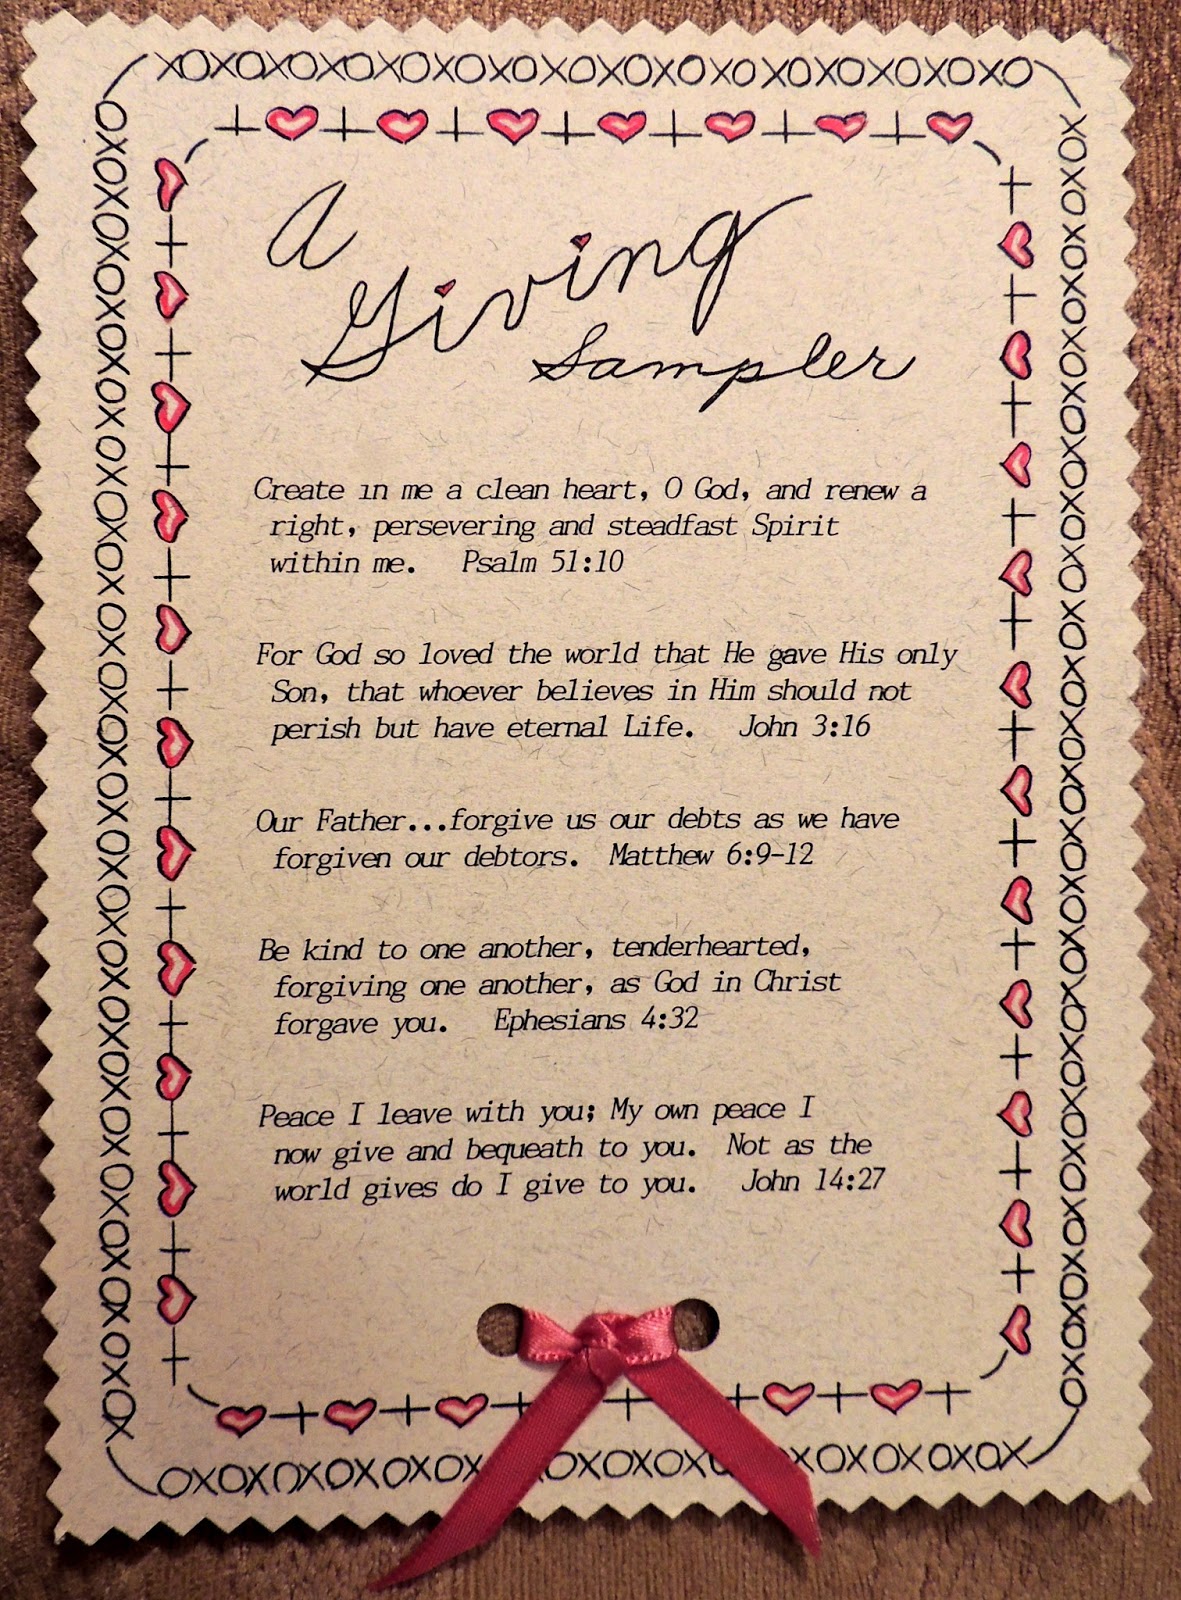 XOXOXOXOXOXOXOXOXOXOXOXOXOXOXOXO
A
Giving
Sampler
Create in me a clean heart, O God, and renew a
right, persevering and steadfast Spirit
within me. Psalm 51:10
For God so loved the world that He gave His only
Son, that whoever believes in Him should not
perish but have eternal Life. John 3:16
Our Father...forgive us our debts as we have
forgiven our debtors. Matthew 6:9-12
Be kind to one another, tenderhearted,
forgiving one another, as God in Christ
forgave you. Ephesians 4:32
Peace I leave with you; My own peace I
now give and bequeath to you. Not as the
world gives do I give to you. John 14:27